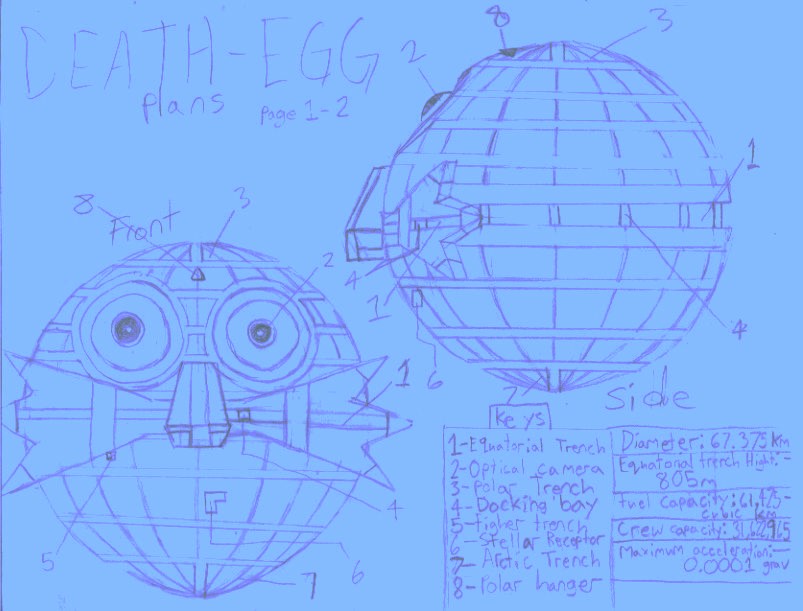 DEATH-EGG
plans page 1-2
8
2
3
1
4
1
6
7
4
Side
8
Front
3
2
1
4
5
6
7
keys
1-Equatorial Trench
2-Optical camera
3-Polar Trench
4-Docking bay
5-figher trench
6-Stellar Receptor
7-Arctic Trench
8-Polar hanger
Diameter: 67.375 km
Equatorial trench Hight:-
805m
fuel capacity:
cubic km
Crew capacity:
Maximum acceleration:-
0.0001 grav